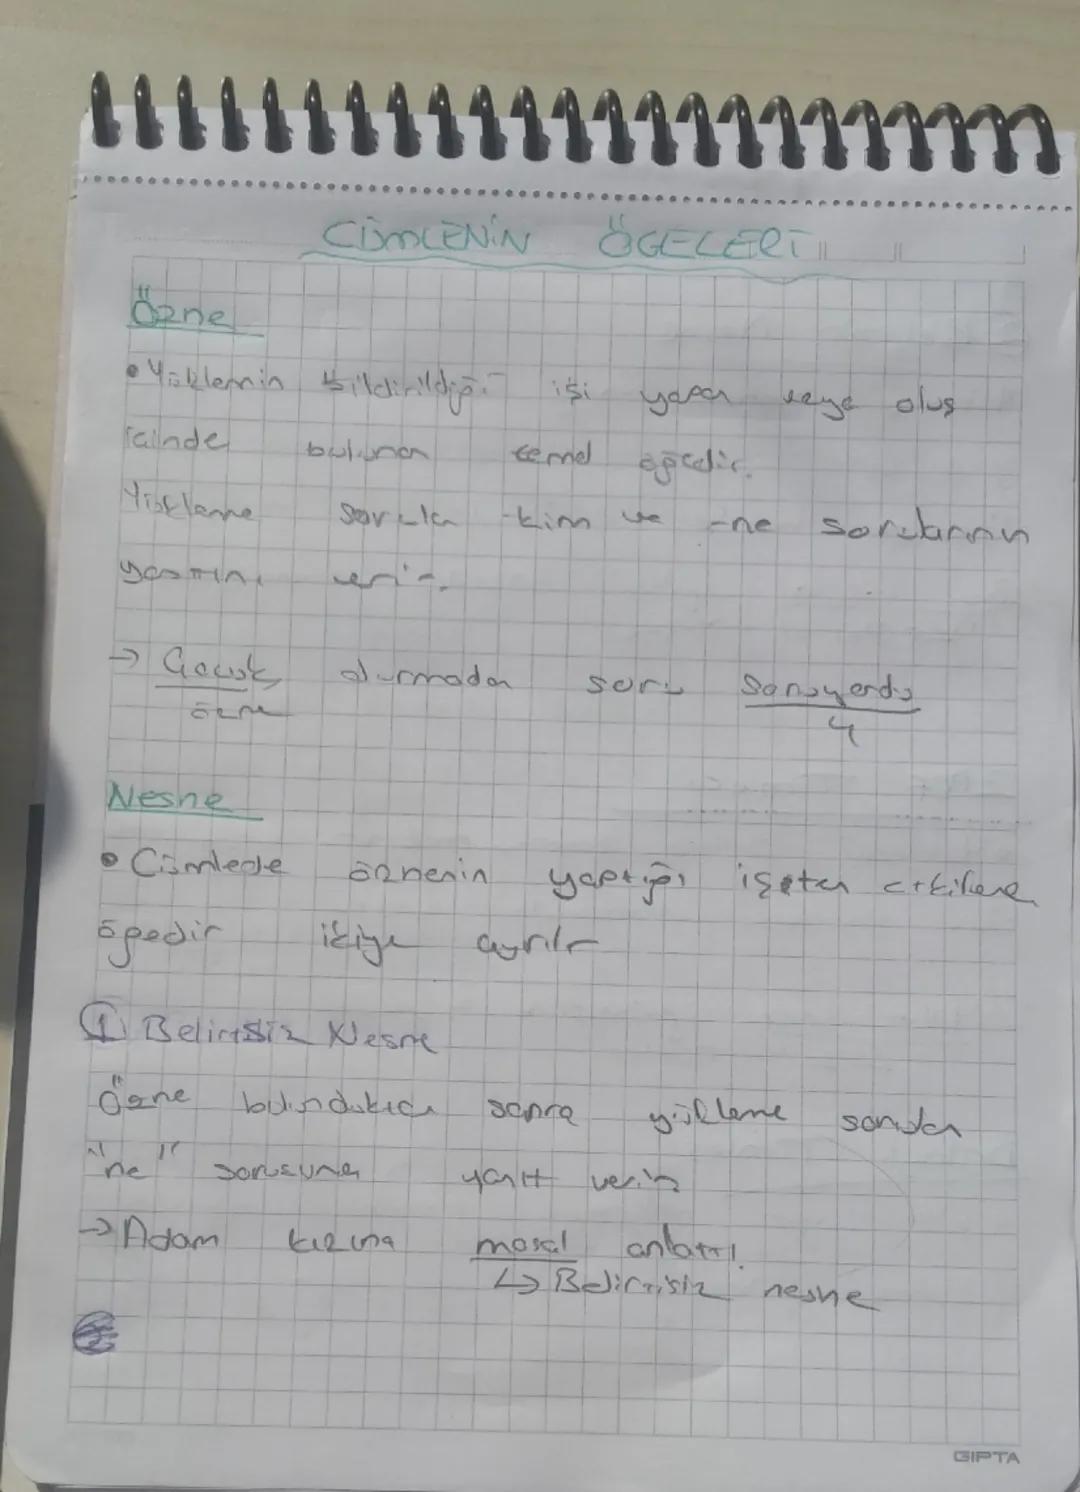 CÜMLENİN ÖGELERİ
Özne
• Yüklemin bildirildiği işi yapan veya oluş
içinde bulunan temel ögedir.
Yükleme sorulan -kim ve -ne sorularının
yanıtını verir.
→ Çocuk durmadan soru soruyordu
özne
Nesne
• Cümlede öznenin yaptığı işten etkilene
ögedir ikiye ayrılır
① Belirtsiz Nesne
Özne bulunduktan sonra yükleme sorulan
"ne" sorusuna yanıt verir
→ Adam kızına masal anlattı.
↳ Belirtisiz nesne
GIPTA